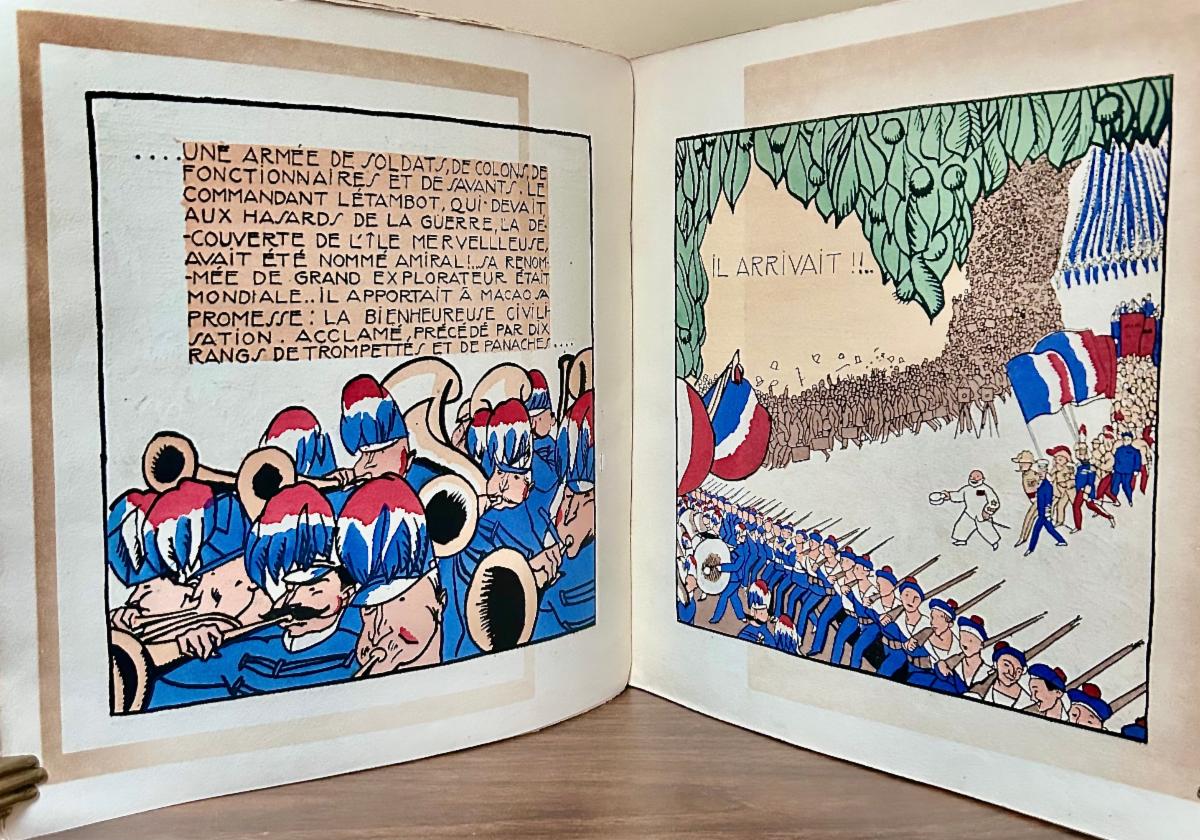 ....UNE ARMÉE DE SOLDATS, DE COLONS, DE
FONCTIONNAIRES ET DE SAVANTS. LE
COMMANDANT LÉTAMBOT, QUI DEVAIT,
AUX HASARDS DE LA GUERRE, LA DÉ-
-COUVERTE DE L'ÎLE MERVEILLEUSE,
AVAIT ÉTÉ NOMMÉ AMIRAL!..SA RENOM-
-MÉE DE GRAND EXPLORATEUR ÉTAIT
MONDIALE..IL APPORTAIT À MACAO SA
PROMESSE: LA BIENHEUREUSE CIVILI-
SATION. ACCLAMÉ, PRÉCÉDÉ PAR DIX
RANGS DE TROMPETTES ET DE PANACHES....
IL ARRIVAIT !!..